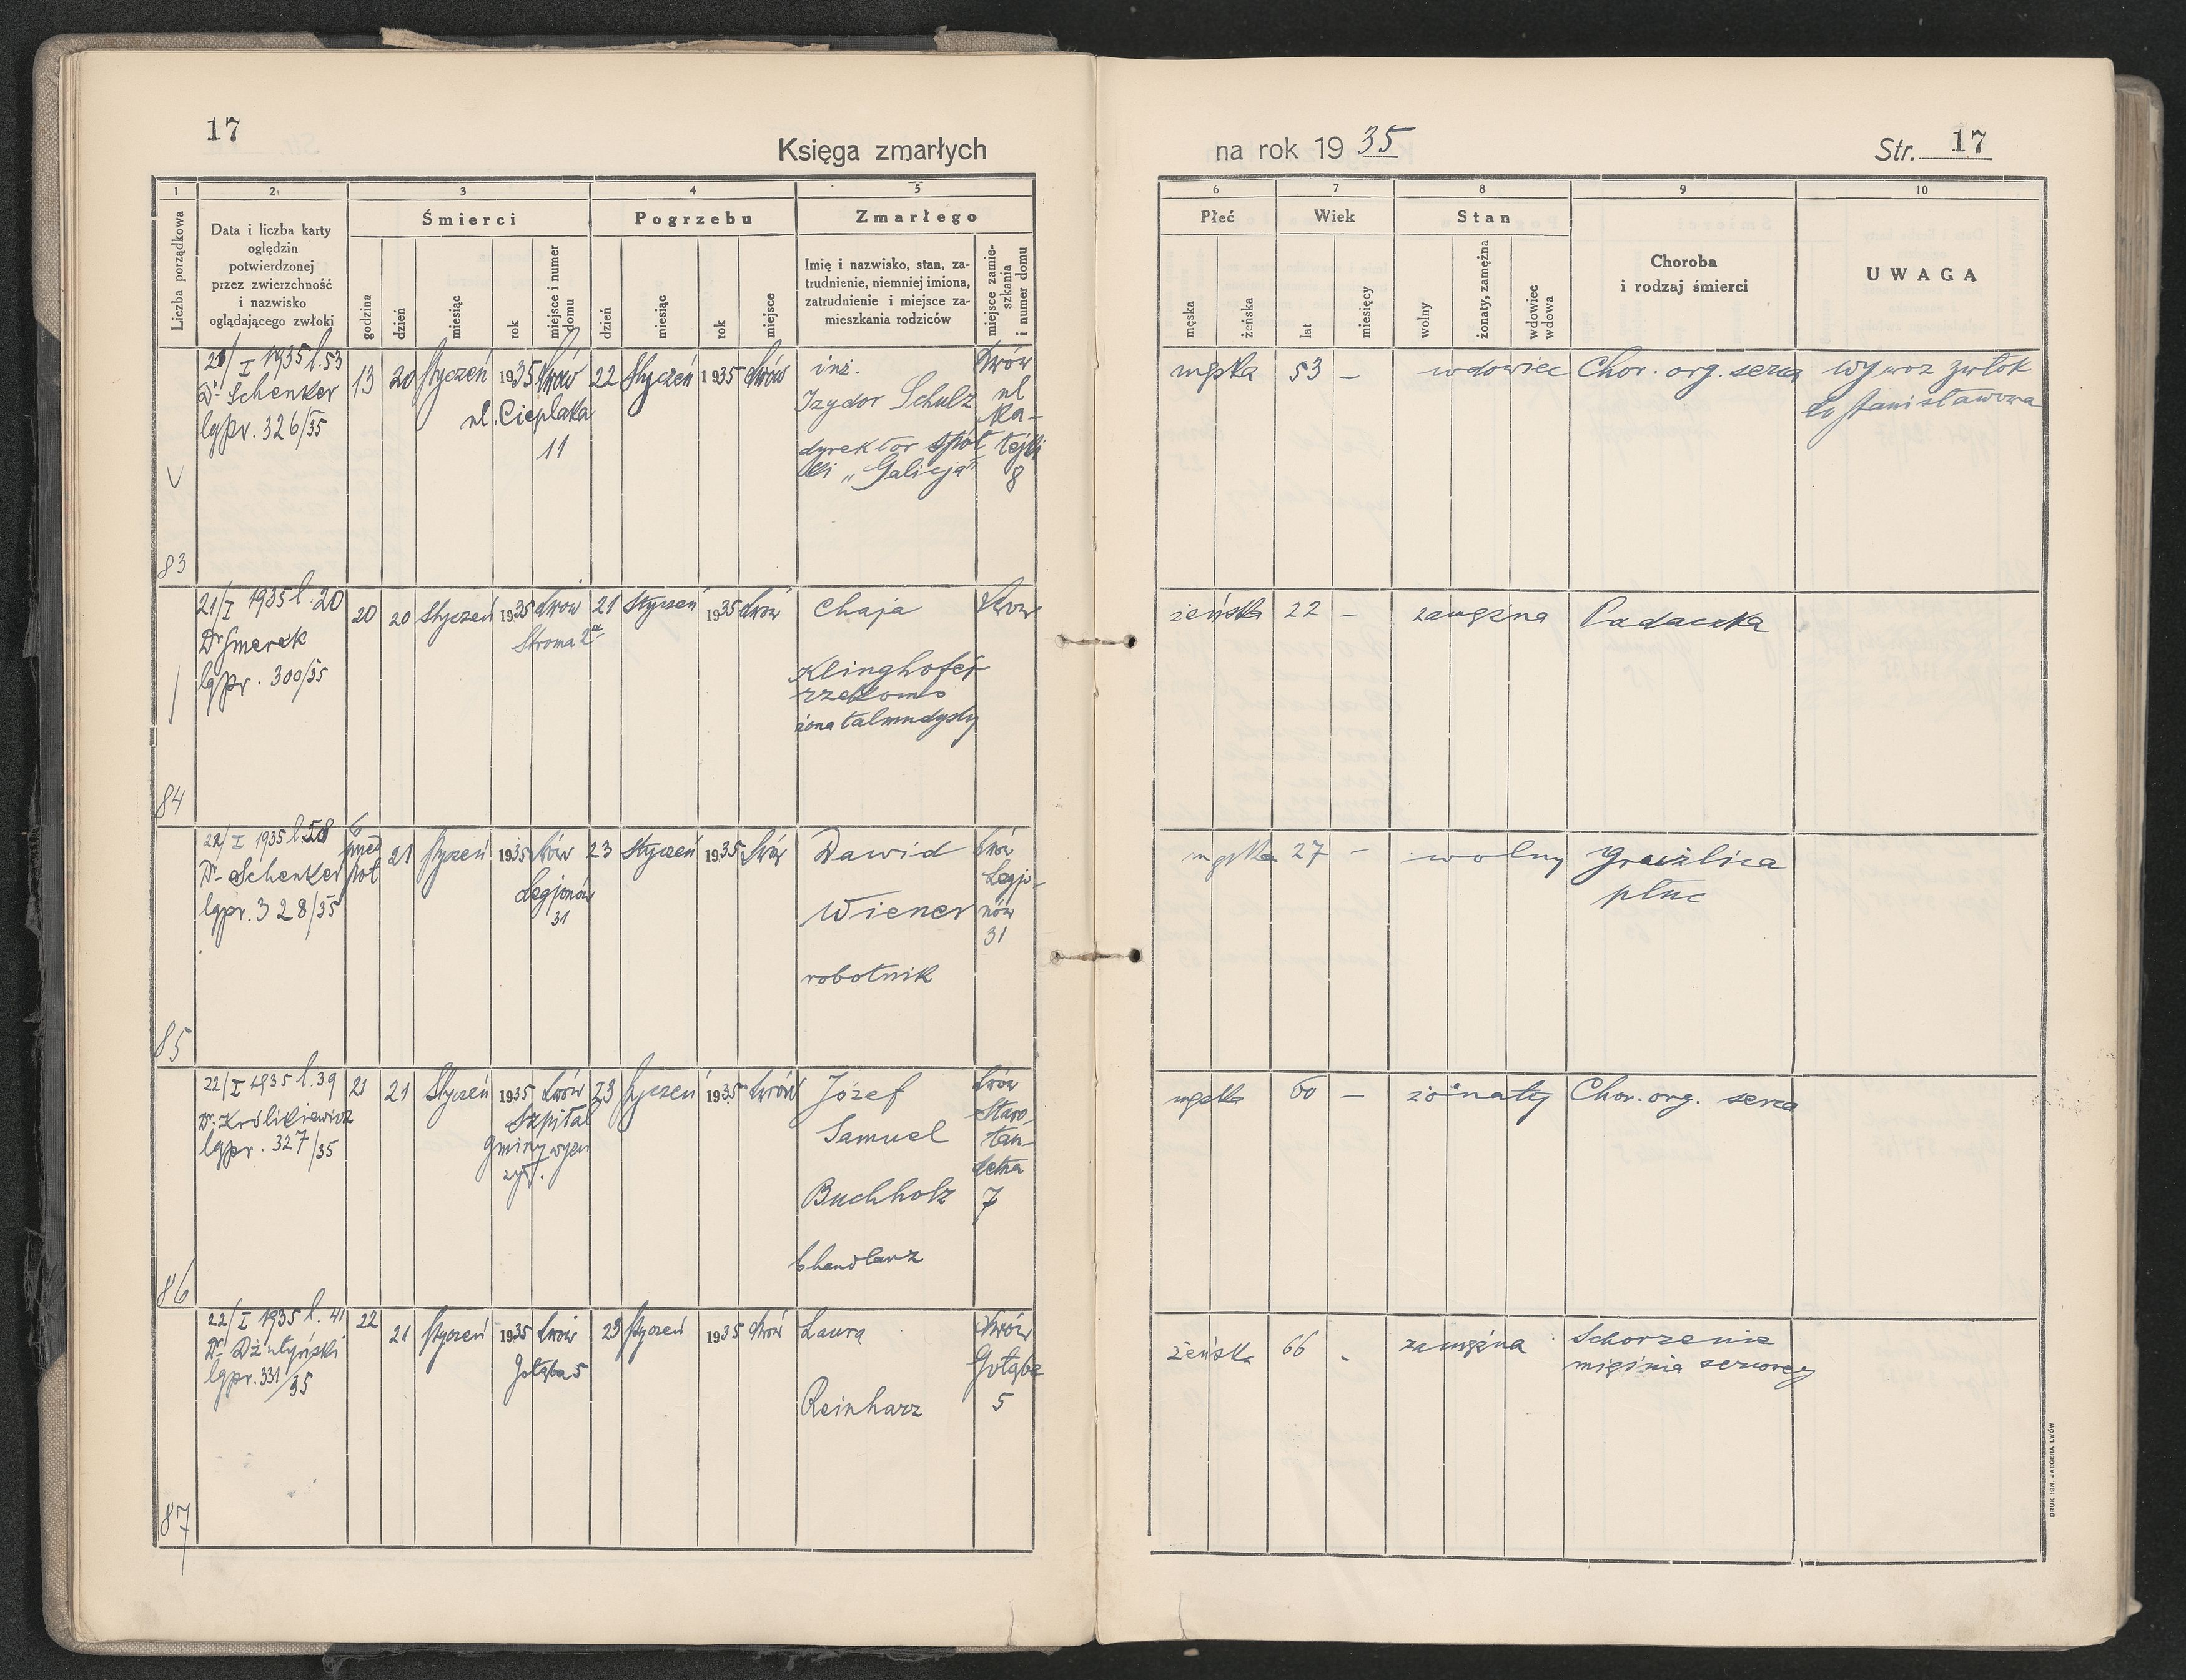 17
Księga zmarłych
1 2 3 4 5
Liczba porządkowa
Data i liczba karty
oględzin
potwierdzonej
przez zwierzchność
i nazwisko
oglądającego zwłoki
Śmierci
godzina
dzień
miesiąc
rok
miejsce i numer
domu
Pogrzebu
dzień
miesiąc
rok
miejsce
Zmarłego
Imię i nazwisko, stan, za-
trudnienie, niemniej imiona,
zatrudnienie i miejsce za-
mieszkania rodziców
miejsce zamie-
szkania
i numer domu
83
21/I 1935 l. 53
Dr Schenker
lgpr. 326/35
13 20 Styczeń 1935 Lwów
ul. Cieplaka
11
22 Styczeń 1935 Lwów
inż.
Izydor Schulz
dyrektor spół
ki „Galicja"
Lwów
ul
Ka-
8
84
21/I 1935 l. 20
Dr Smerek
lgpr. 300/35
20 20 Styczeń 1935 Lwów
Stroma 2a
21 Styczeń 1935 Lwów
Chaja
Klinghofer
rzekomo
żona talmudysty
Lwów
85
22/I 1935 l. 58
Dr Schenker
lgpr. 328/35
6
przed
poł
21 Styczeń 1935 Lwów
Legjonów
31
23 Styczeń 1935 Lwów
Dawid
Wiener
robotnik
Lwów
Legjo-
nów
31
86
22/I 1935 l. 39
Dr. Królikiewicz
lgpr. 327/35
21 21 Styczeń 1935 Lwów
Szpital
Gminy wyzn
żyd.
23 Styczeń 1935 Lwów
Józef
Samuel
Buchholz
b handlarz
Lwów
Staro-
tan-
detna
7
87
22/I 1935 l. 41
Dr
lgpr. 331/35
22 21 Styczeń 1935 Lwów
Gołąba 5
23 Styczeń 1935 Lwów
Laura
Reinharz
Lwów
Gołąba
5
na rok 1935
Str. 17
6 7 8 9 10
Płeć
męska
żeńska
Wiek
lat
miesięcy
Stan
wolny
żonaty, zamężna
wdowiec
wdowa
Choroba
i rodzaj śmierci
UWAGA
męska 53 – wdowiec Chor. org. serca
wywóz zwłok
do Stanisławowa
żeńska 22 – zamężna Padaczka
męska 27 – wolny Gruźlica
płuc
męska 60 – żonaty Chor. org. serca
żeńska 66 - zamężna Schorzenie
mięśnia sercowego
DRUK IGN. JAEGERA LWÓW